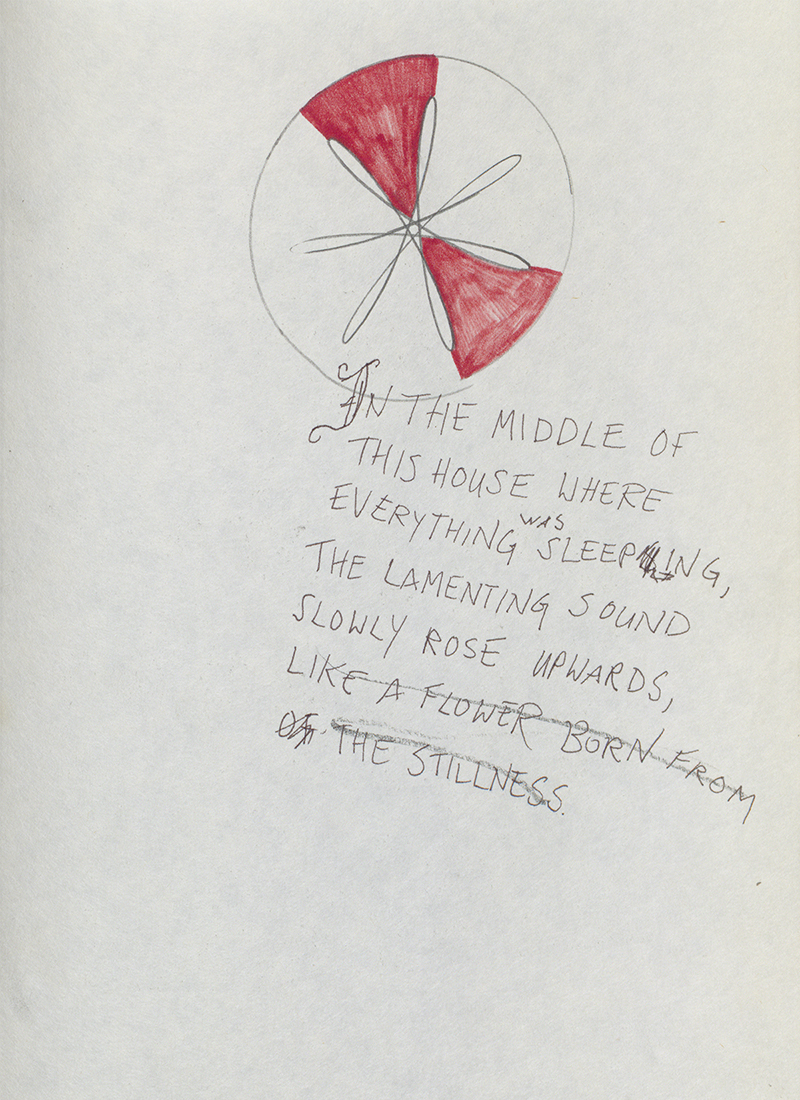 IN THE MIDDLE OF
THIS HOUSE WHERE
EVERYTHING WAS SLEEPING,
THE LAMENTING SOUND
SLOWLY ROSE UPWARDS,
LIKE A FLOWER BORN FROM
THE STILLNESS.